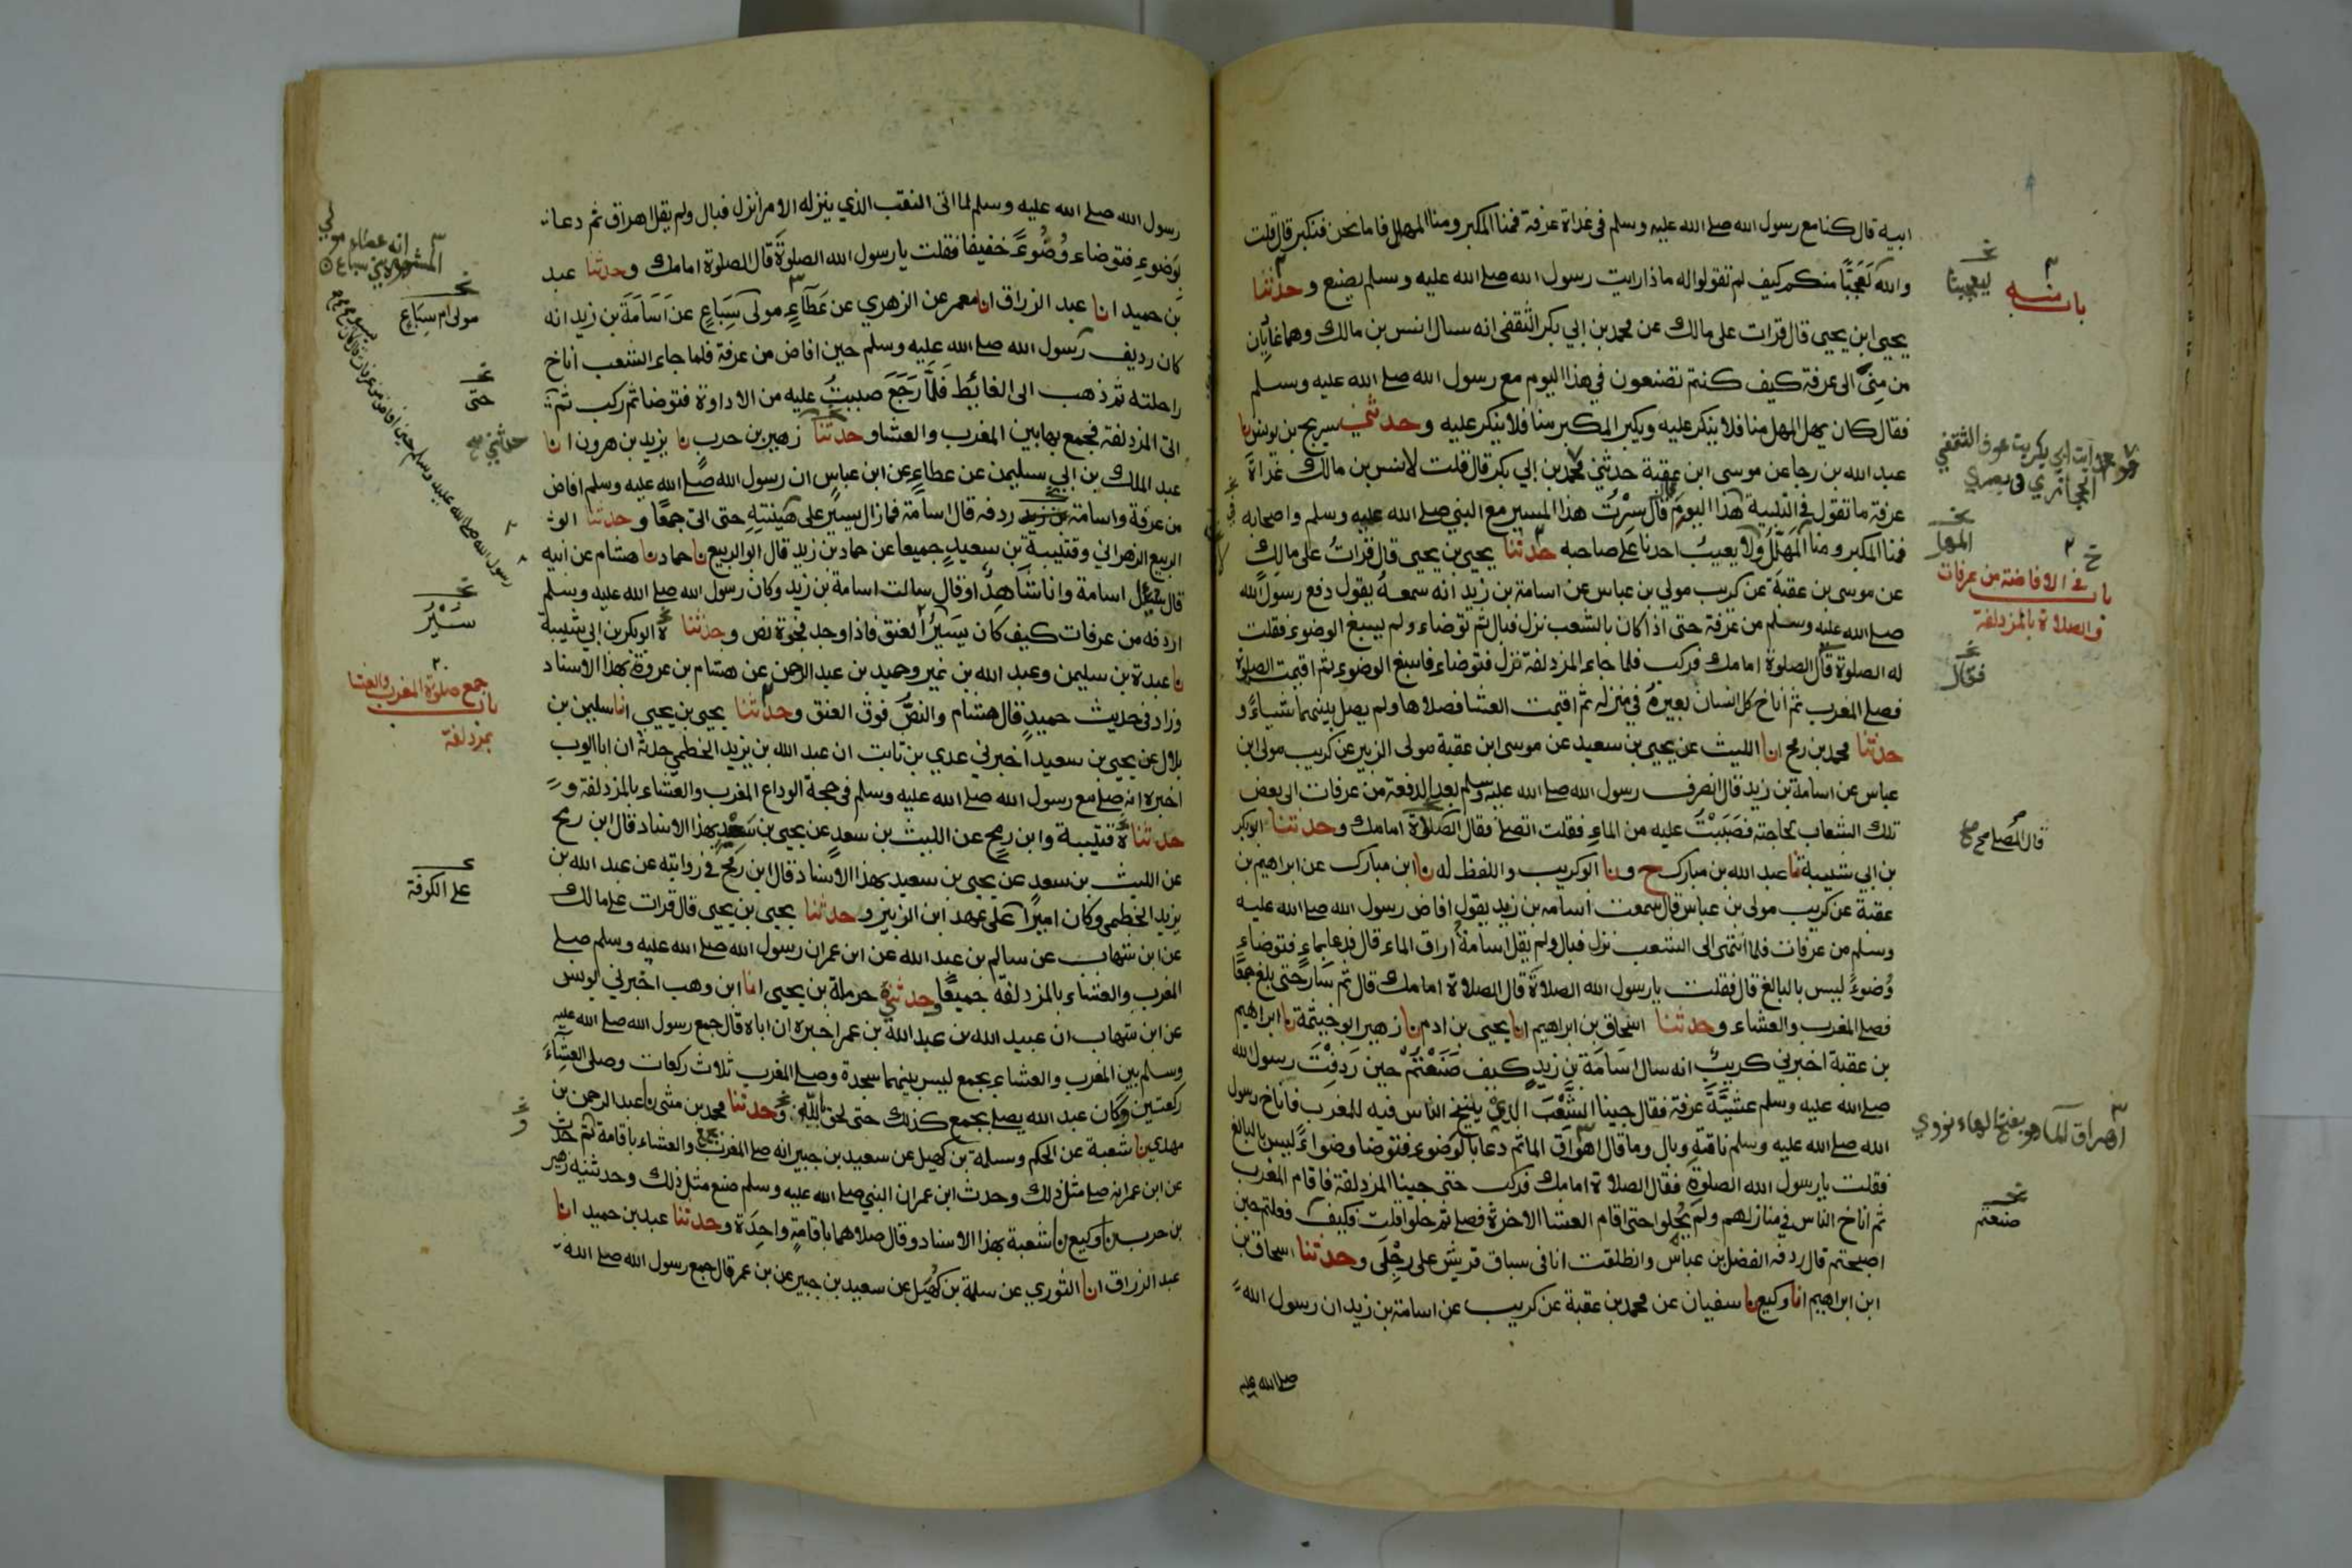 ابيه قال كنا مع رسول الله صلى الله عليه وسلم في غداة عرفة فمنا المكبر ومنا المهلل فاما نحن فنكبر قال قلت
والله لَعَجَبًا منكم كيف لم تقولوا له ماذا رايت رسول الله صلى الله عليه وسلم يصنع وحدثنا
يحيى ابن يحيى قال قرات على مالك عن محمد بن ابي بكر الثقفي انه سال انس بن مالك وهما غاديان
من مِنىً الى عرفة كيف كنتم تصنعون في هذا اليوم مع رسول الله صلى الله عليه وسلم
فقال كان يهل المهل منا فلا ينكر عليه ويكبر المكبر منا فلا ينكر عليه وحدثني سريج بن يونس نا
عبد الله بن رجا عن موسى ابن عقبة حدثني محمد بن ابي بكر قال قلت لانس بن مالك غداة
عرفة ما تقول في التلبية هذا اليوم قال سِرْتُ هذا المسير مع النبي صلى الله عليه وسلم واصحابه
فمنا المكبر ومنا المهلل ولا يعيب احدنا على صاحبه حدثنا يحيى بن يحيى قال قرات على مالك
عن موسى بن عقبة عن كريب مولى بن عباس عن اسامة بن زيد انه سمعه يقول دفع رسول الله
صلى الله عليه وسلم من عرفة حتى اذا كان بالشعب نزل فبال ثم توضاء ولم يسبغ الوضوء فقلت
له الصلوة قال الصلوة امامك فركب فلما جاء المزدلفة نزل فتوضاء فاسبغ الوضوء ثم اقيمت الصلوة
فصلى المغرب ثم اناخ كل انسان بعيره في منزله ثم اقيمت العشا فصلاها ولم يصل بينهما شياء و
حدثنا محمد بن رمح انا الليث عن يحيى بن سعيد عن موسى ابن عقبة مولى الزبير عن كريب مولى ابن
عباس عن اسامة بن زيد قال انصرف رسول الله صلى الله عليه وسلم بعد الدفعة من عرفات الى بعض
تلك الشعاب لحاجته فصَبَبْتُ عليه من الماء فقلت اتصلي فقال الصلاة امامك وحدثنا ابو بكر
بن ابي شيبة نا عبد الله بن مبارك ح ونا ابو كريب واللفظ له نا ابن مبارك عن ابراهيم بن
عقبة عن كريب مولى بن عباس قال سمعت اسامة بن زيد يقول افاض رسول الله صلى الله عليه
وسلم من عرفات فلما انتهى الى الشعب نزل فبال ولم يقل اسامة اراق الماء قال فدعا بماء فتوضاء
وُضوءً ليس بالبالغ قال فقلت يا رسول الله الصلاة قال الصلاة امامك قال ثم سار حتى بلغ جمعًا
فصلى المغرب والعشاء وحدثنا اسحاق بن ابراهيم انا يحيى بن ادم نا زهير ابو خيثمة نا ابراهيم
بن عقبة اخبرني كريب انه سال اسامة بن زيد كيف صَنَعْتُم حين رَدِفْتَ رسول الله
صلى الله عليه وسلم عشيَّةَ عرفة فقال جينا الشِّعْبَ الذي ينيخ الناس فيه للمغرب فاناخ رسول
الله صلى الله عليه وسلم ناقته وبال وما قال اهراق الما ثم دعا بالوضوء فتوضا وضواءً ليس بالبالغ
فقلت يا رسول الله الصلوة فقال الصلاة امامك فركب حتى جينا المزدلفة فاقام المغرب
ثم اناخ الناس في منازلهم ولم يُحلوا حتى اقام العشا الاخرة فصلى ثم حلوا قلت فكيف فعلتم حين
اصبحتم قال ردفه الفضل بن عباس وانطلقت انا في سباق قريش على رِجْلَى وحدثنا اسحاق بن
ابن ابراهيم انا وكيع نا سفيان عن محمد بن عقبة عن كريب عن اسامة بن زيد ان رسول الله
صلى الله عليه
باب منه
باب في الافاضة من عرفات
والصلاة بالمزدلفة
فقال
قال المصلى
اهراق الما هو بفتح الهاء نووي
صنعتم
رسول الله صلى الله عليه وسلم لما اتى النقب الذي ينزله الامرا نزل فبال ولم يقل اهراق ثم دعا
بوَضوءِ فتوضاء وُضُوءً خفيفا فقلت يا رسول الله الصلوةَ قال الصلوة امامك وحدثنا عبد
بن حميد انا عبد الرزاق انا معمر عن الزهري عن عَطَآءٍ مولى سِبَاعٍ عن اسَامَةَ بن زيد انه
كان رديف رسول الله صلى الله عليه وسلم حين افاض من عرفة فلما جاء الشعب اناخ
راحلته ثم ذهب الى الغائط فَلمَّا رَجَعَ صببتُ عليه من الاداوة فتوضا ثم ركب ثم
اتى المزدلفة فجمع بها بين المغرب والعشا وحدثنا زهير بن حرب نا يزيد بن هرون انا
عبد الملك بن ابي سليمن عن عطاءٍ عن ابن عباس ان رسول الله صلى الله عليه وسلم افاض
من عرفة واسامة بن زيد ردفه قال اسامة فما زال يسير على هيئتهِ حتى اتى جمعًا وحدثنا ابو
الربيع الزهراني وقتيبة بن سعيد جميعا عن حماد بن زيد قال ابو الربيع نا حماد نا هشام عن ابيه
قال سُئل اسامة وانا شَاهِدٌ او قال سالت اسامة بن زيد وكان رسول الله صلى الله عليه وسلم
اردفه من عرفات كيف كان يسير العنق فاذا وجد فجوة نص وحدثناه ابو بكر بن ابي شيبة
نا عبدة بن سليمن وعبد الله بن نمير وحميد بن عبد الرحمن عن هشام بن عروة بهذا الاسناد
وزاد في حديث حميد قال هشام والنصُّ فوق العنق وحدثنا يحيى بن يحيى انا سليمن بن
بلال عن يحيى بن سعيد اخبرني عدي بن ثابت ان عبد الله بن يزيد الخطمي حدثه ان ابا ايوب
اخبره انه صلى مع رسول الله صلى الله عليه وسلم في حجة الوداع المغرب والعشاء بالمزدلفة و
حدثناه قتيبة وابن رمح عن الليث بن سعدٍ عن يحيى بن سعيد بهذا الاسناد قال ابن رمح
عن الليث بن سعد عن يحيى بن سعيد بهذا الاسناد قال ابن رمح في روايته عن عبد الله بن
يزيد الخطمي وكان اميرًا على عهد ابن الزبير وحدثنا يحيى بن يحيى قال قرات على مالك
عن ابن شهاب عن سالم بن عبد الله عن ابن عمر ان رسول الله صلى الله عليه وسلم صلى
المغرب والعشاء بالمزدلفة جميعًا وحدثني حرملة بن يحيى انا ابن وهب اخبرني يونس
عن ابن شهاب ان عبيد الله بن عبد الله بن عمر اخبره ان اباه قال جمع رسول الله صلى الله عليه
وسلم بين المغرب والعشاء بجمع ليس بينهما سجدة وصلى المغرب ثلاث ركعات وصلى العِشَاءَ
ركعتين وكان عبد الله يصلي بجمع كذلك حتى لحق بالله وحدثنا محمد بن مثنى نا عبد الرحمن بن
مهدي نا شعبة عن الحكم وسلمة بن كهيل عن سعيد بن جبير انه صلى المغرب بجمع والعشاء باقامة ثم حدث
عن ابن عمر انه صلى مثل ذلك وحدث ابن عمر ان النبي صلى الله عليه وسلم صنع مثل ذلك وحدثنيه زهير
بن حرب نا وكيع نا شعبة بهذا الاسناد وقال صلاهما باقامةٍ واحِدَة وحدثنا عبد بن حميد انا
عبد الرزاق انا الثوري عن سلمة بن كُهَيْل عن سعيد بن جبير عن بن عمر قال جمع رسول الله صلى الله
مولى ام سِبَاعٍ
حتى
حدثني
سَيْرُ
باب جمع صلوة المغرب والعشا
بمزدلفة
على الكوفة